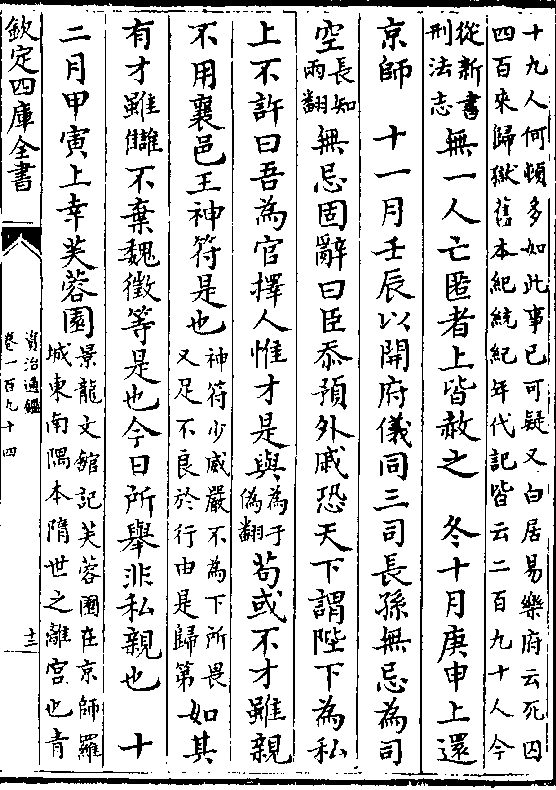 十九人何頓多如此事已可疑又白居易樂府云死囚
四百來歸獄舊本紀統紀年代記皆云二百九十人今
從新書
刑法志
無一人亡匿者上皆赦之　冬十月庚申上還
京師　十一月壬辰以開府儀同三司長孫無忌為司
空
長知
兩翻
無忌固辭曰臣忝預外戚恐天下謂陛下為私
上不許曰吾為官擇人惟才是與
為于
偽翻
苟或不才雖親
不用襄邑王神符是也
神符少威嚴不為下所畏
又足不良於行由是歸第
如其
有才雖讎不棄魏徵等是也今日所舉非私親也　十
二月甲寅上幸芙蓉園
景龍文館記芙蓉園在京師羅
城東南隅本隋世之離宮也青
欽定四庫全書
資治通鑑
卷一百九十四
十三